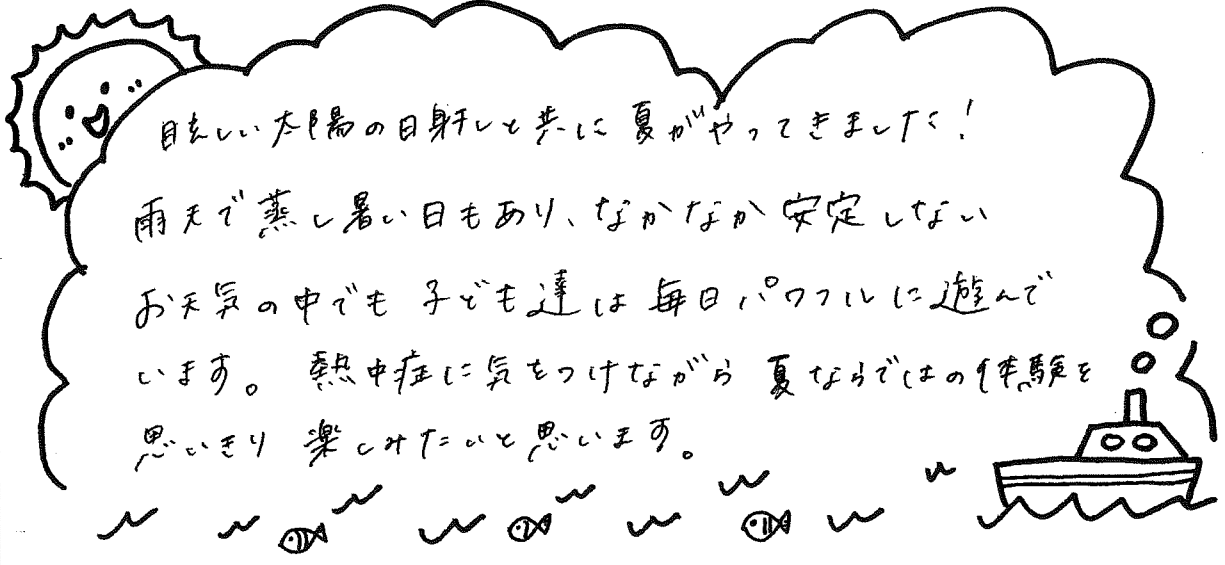 眩しい太陽の日射しと共に夏がやってきました！
雨天で蒸し暑い日もあり、なかなか安定しない
お天気の中でも子ども達は毎日パワフルに遊んで
います。熱中症に気をつけながら夏ならではの体験を
思いきり楽しみたいと思います。